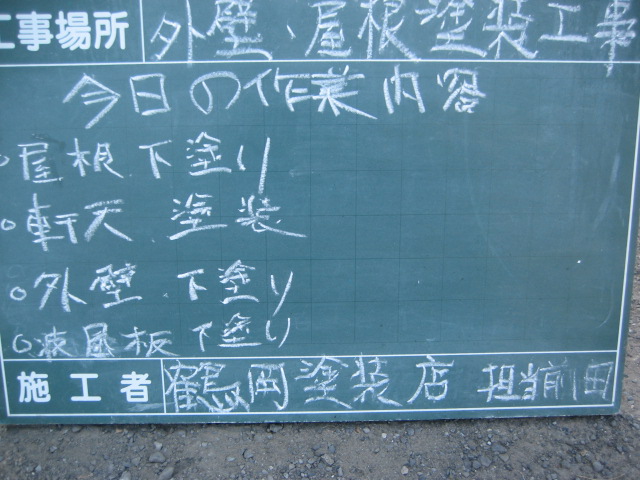 工事場所 外壁、屋根塗装工事
今日の作業内容
○屋根 下塗り
○軒天 塗装
○外壁 下塗り
○破風板 下塗り
施工者 鶴岡塗装店 担当前田